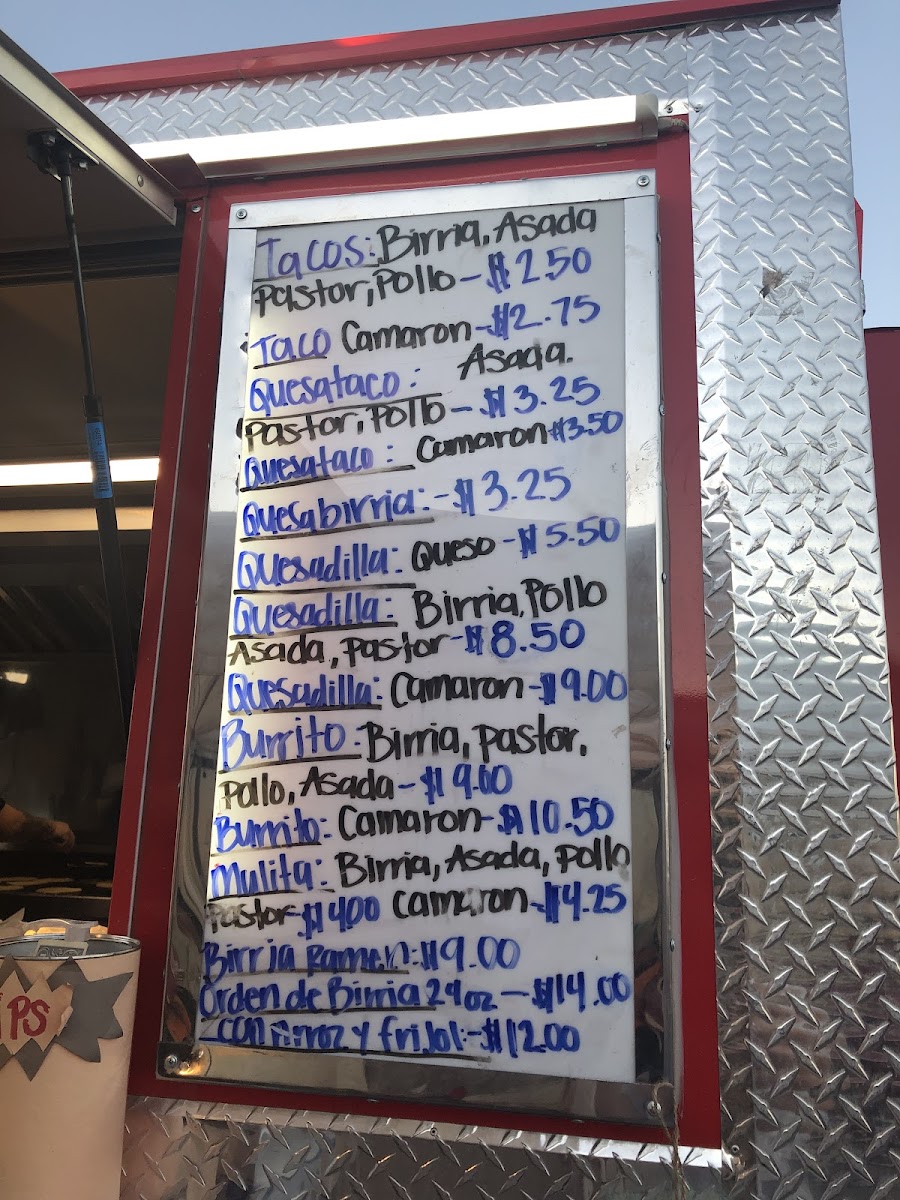 Tacos: Birria, Asada
Pastor, Pollo - $2.50
Taco Camaron - $2.75
Quesataco: Asada.
Pastor, Pollo - $3.25
Quesataco: Camaron $3.50
Quesabirria: - $3.25
Quesadilla: Queso - $5.50
Quesadilla: Birria, Pollo
Asada, Pastor - $8.50
Quesadilla: Camaron - $9.00
Burrito: Birria, pastor,
Pollo, Asada - $9.00
Burrito: Camaron - $10.50
Mulita: Birria, Asada, pollo
Pastor - $4.00 Camaron - $4.25
Birria Ramen: $9.00
Orden de Birria 24oz - $14.00
con Arroz y frijol: - $12.00
PS